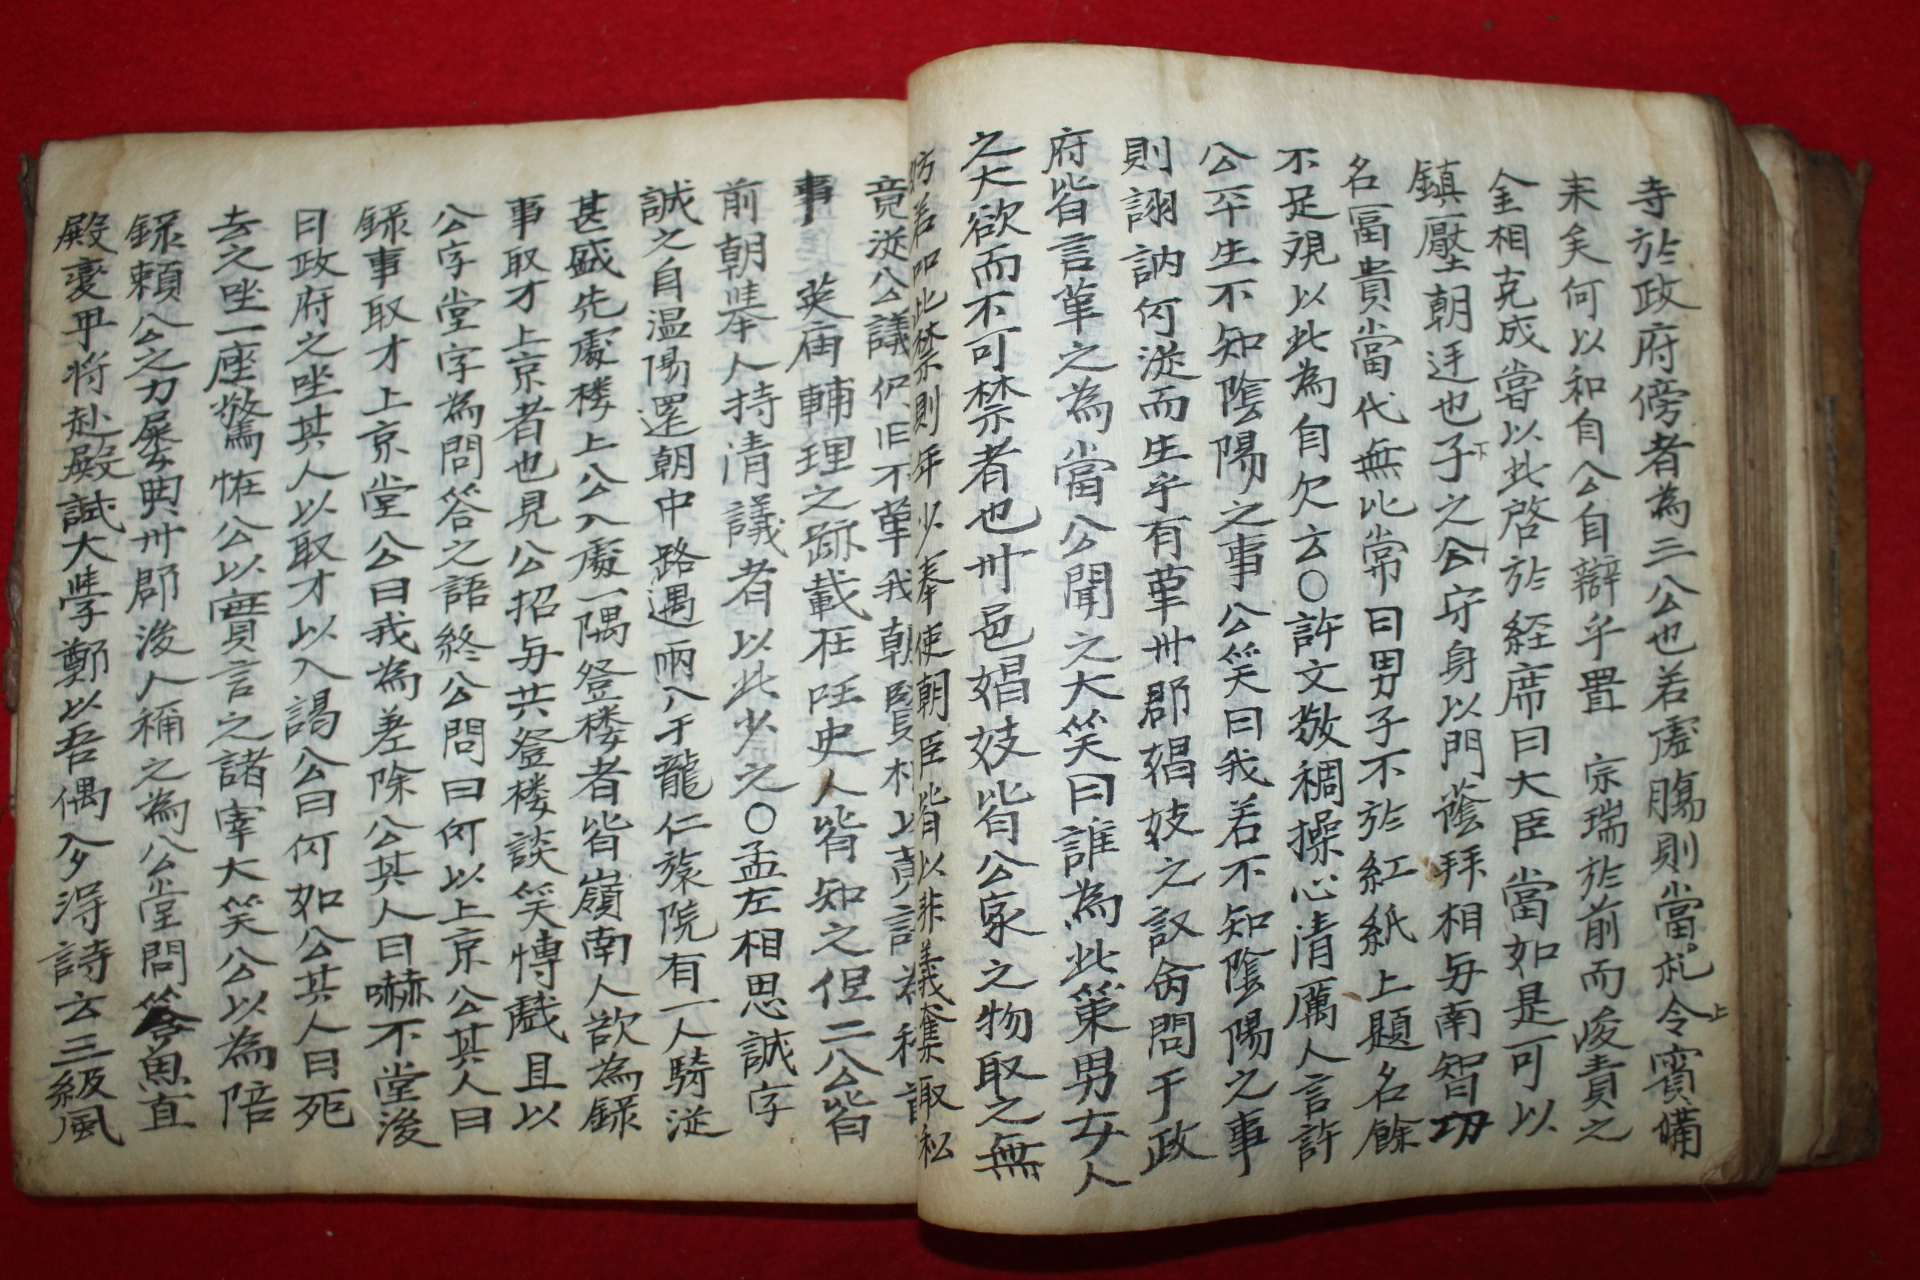 寺於政府傍者為三公也若虛膓則當礼令賓備
来矣何以和自公自辦乎置 宗瑞於前而峻責之
金相克成嘗以此啓於経席曰大臣當如是可以
鎮壓朝迋也子之公守身以門蔭拜相与南智功
名冨貴當代無比常曰男子不於紅紙上題名餘
不足覌以此為自欠云〇許文敬稠操心清厲人言許
公平生不知陰陽之事公笑曰我若不知陰陽之事
則詡訥何泟而生乎有革卅郡猖妓之䚯命問于政
府皆言革之為當公聞之大笑曰誰為此策男女人
之大欲而不可禁者也卅邑娼妓皆公家之物取之無
妨若如此禁則年少奉使朝臣皆以非義奪取私
竟泟公議仍旧不革我朝賢相
事 英庙輔理之跡載在㕵史人皆知之但二公皆
前朝举人持清議者以此少之〇孟左相思誠字
誠之自温陽還朝中路遇雨入于龍仁旅院有一人騎泟
甚盛先處楼上公入處一隅登楼者皆嶺南人欲為録
事取才上京者也見公招与共登楼談笑慱戱且以
公字堂字為問答之語終公問曰何以上京公其人曰
録事取才上京堂公曰我為差除公其人曰嚇不堂後
日政府之坐其人以取才以入謁公曰何如公其人曰死
去之坐一座驚恠公以實言之諸宰大笑公以為陪
録賴公之力屡典卅郡後人稱之為公堂問答魚直
殿変甲将赴殿試大學鄭以吾偶夕得詩云三級風